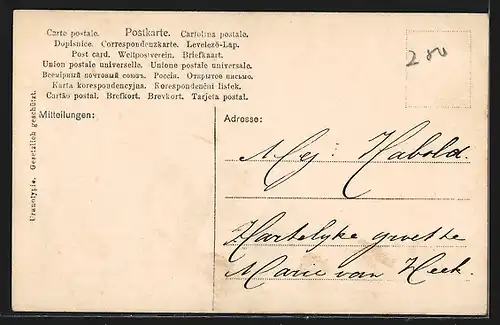 Carte postale. Postkarte. Cartolina postale.
Dopisnice. Correspondenzkarte. Levelező-Lap.
Post card. Weltpostverein. Briefkaart.
Union postale universelle. Unione postale universale.
Всемірный почтовый союзъ. Россія. Открытое письмо.
Karta korespondencyjna. Korespondenční lístek.
Cartão postal. Brefkort. Brevkort. Tarjeta postal.
280
Mitteilungen:
Adresse:
Mej: Habold.
Hartelyke groette
Marie van Heek.
Uranotypie. Gesetzlich geschützt.